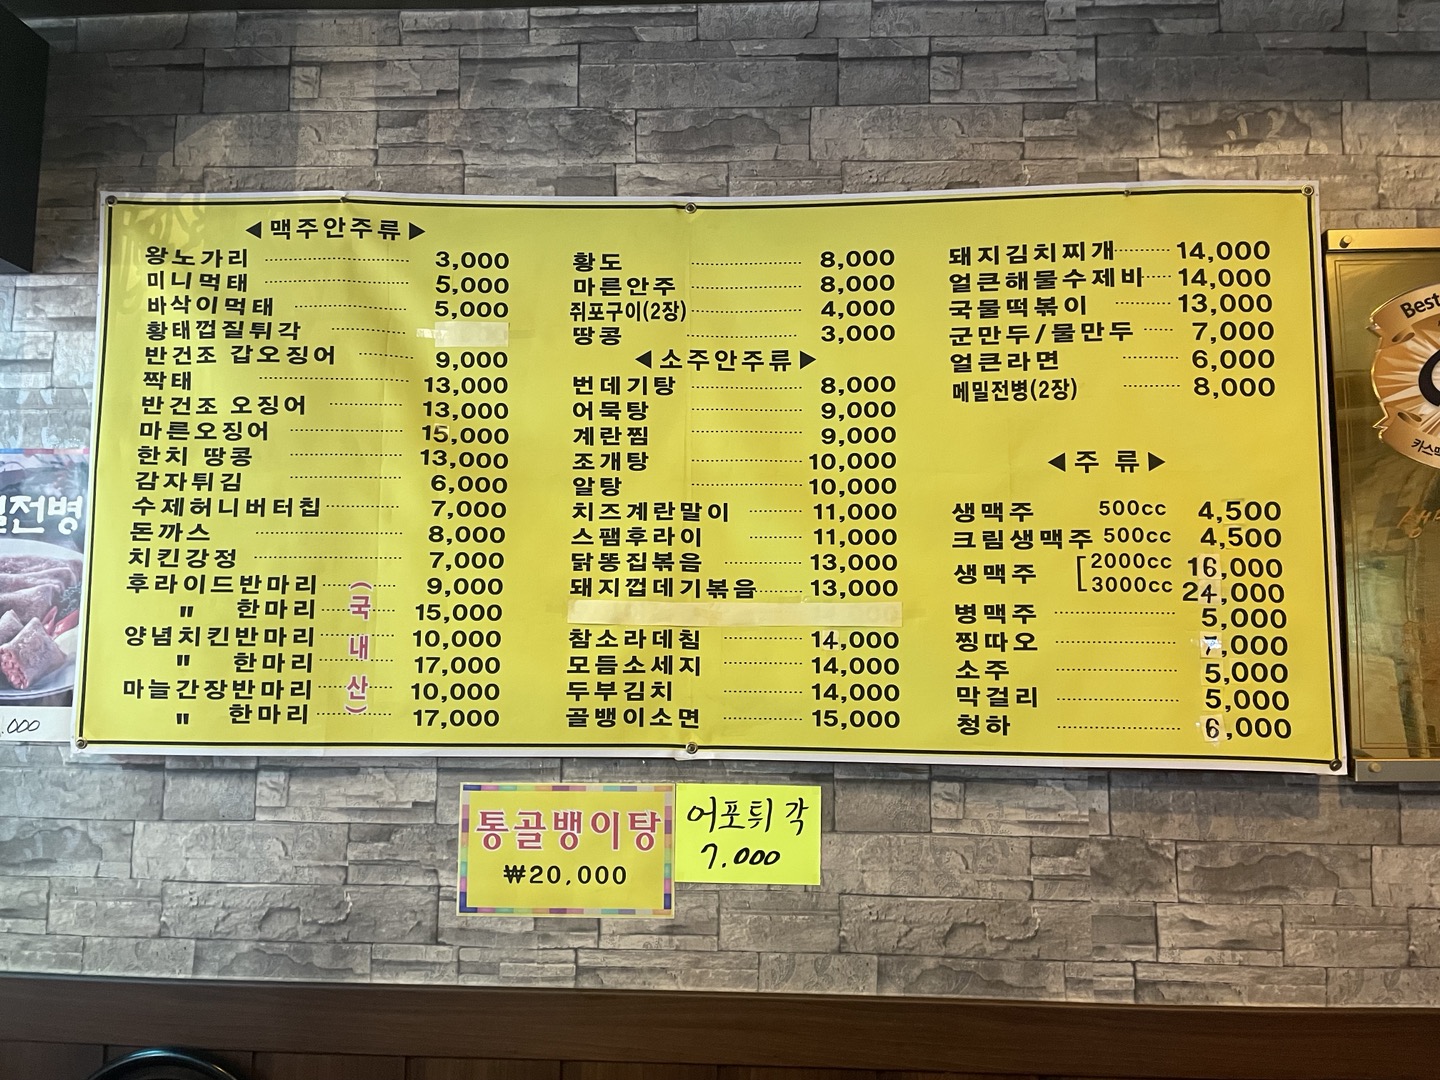 ◀맥주안주류▶
왕노가리 3,000
미니먹태 5,000
바삭이먹태 5,000
황태껍질튀각
반건조 갑오징어 9,000
짝태 13,000
반건조 오징어 13,000
마른오징어 15,000
한치 땅콩 13,000
감자튀김 6,000
수제허니버터칩 7,000
돈까스 8,000
치킨강정 7,000
후라이드반마리 9,000
" 한마리 15,000
양념치킨반마리 10,000
" 한마리 17,000
마늘간장반마리 10,000
" 한마리 17,000
(국내산)
황도 8,000
마른안주 8,000
쥐포구이(2장) 4,000
땅콩 3,000
◀소주안주류▶
번데기탕 8,000
어묵탕 9,000
계란찜 9,000
조개탕 10,000
알탕 10,000
치즈계란말이 11,000
스팸후라이 11,000
닭똥집볶음 13,000
돼지껍데기볶음 13,000
참소라데침 14,000
모듬소세지 14,000
두부김치 14,000
골뱅이소면 15,000
돼지김치찌개 14,000
얼큰해물수제비 14,000
국물떡볶이 13,000
군만두/물만두 7,000
얼큰라면 6,000
메밀전병(2장) 8,000
◀주 류▶
생맥주 500cc 4,500
크림생맥주 500cc 4,500
생맥주 [2000cc 16,000
3000cc 24,000
병맥주 5,000
찡따오 7,000
소주 5,000
막걸리 5,000
청하 6,000
통골뱅이탕
₩20,000
어포튀각
7.000
전병
.000
Best